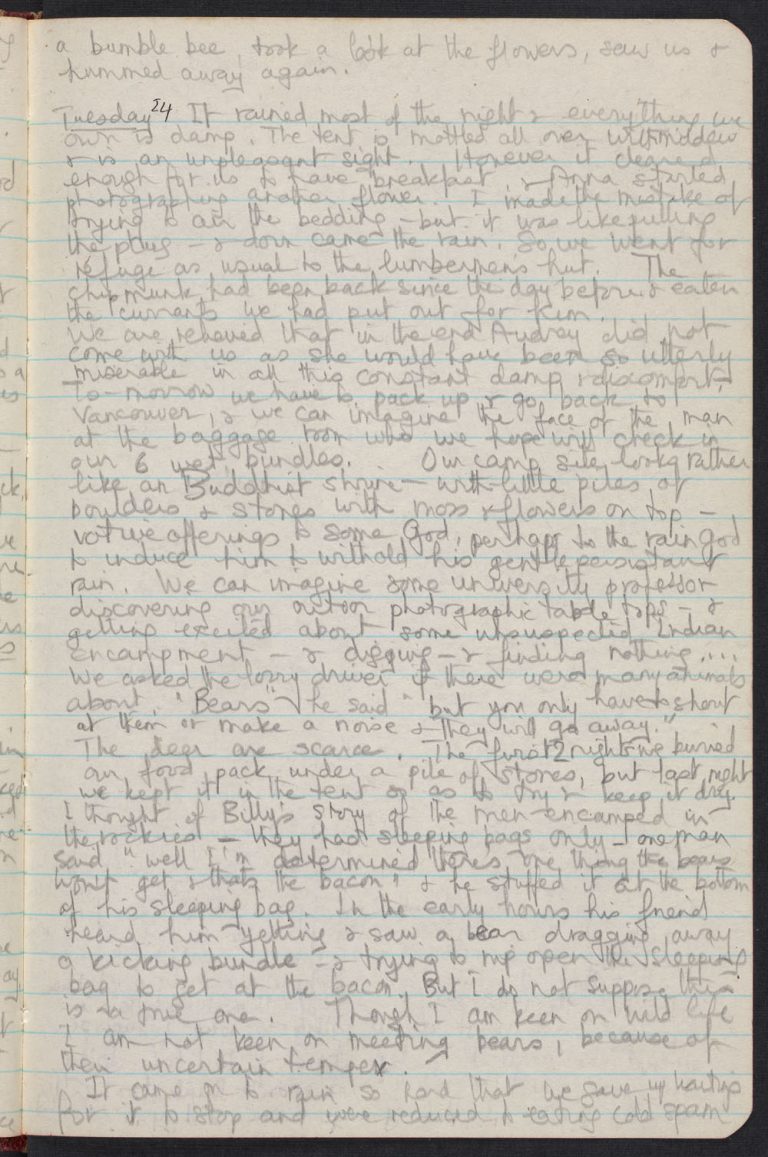 a bumble bee, took a look at the flowers, saw us &
hummed away again.
Tuesday 24 It rained most of the night & everything we
own is damp. The tent is mottled all over with mildew
& is an unpleasant sight. However it cleared
enough for us to have breakfast & Anna started
photographing another flower. I made the mistake of
trying to air the bedding - but it was like pulling
the plug - & down came the rain. So we went for
refuge as usual to the lumbermen's hut. The
chipmunk had been back since the day before & eaten
the currants we had put out for him.
We are relieved that in the end Audrey did not
come with us as she would have been so utterly
miserable in all this constant damp & discomfort.
To-morrow we have to pack up & go back to
Vancouver, & we can imagine the face of the man
at the baggage room who we hope will check in
our 6 wet bundles. Our camp site looks rather
like an Buddhist shrine - with little piles of
boulders & stones with moss & flowers on top -
votive offerings to some God, perhaps to the rain god
to induce him to withold his gentle persistant
rain. We can imagine some university professor
discovering our outdoor photographic table tops - &
getting excited about some unsuspected Indian
encampment - & digging - & finding nothing....
We asked the lorry driver if there were many animals
about. "Bears" he said "but you only have to shout
at them or make a noise & they will go away."
The deer are scarce. The first 2 nights we buried
our food pack under a pile of stones, but last night
we kept it in the tent so as to try & keep it dry.
I thought of Billy's story of the men encamped in
the rockies - they had sleeping bags only - one man
said "well I'm determined there's one thing the bears
won't get & that's the bacon" & he stuffed it at the bottom
of his sleeping bag. In the early hours his friend
heard him yelling & saw a bear dragging away
a kicking bundle - & trying to rip open the sleeping
bag to get at the bacon. But I do not suppose this
is a true one. Though I am keen on wild life
I am not keen on meeting bears, because of
their uncertain temper.
It came on to rain so hard that we gave up waiting
for it to stop and were reduced to eating cold spam